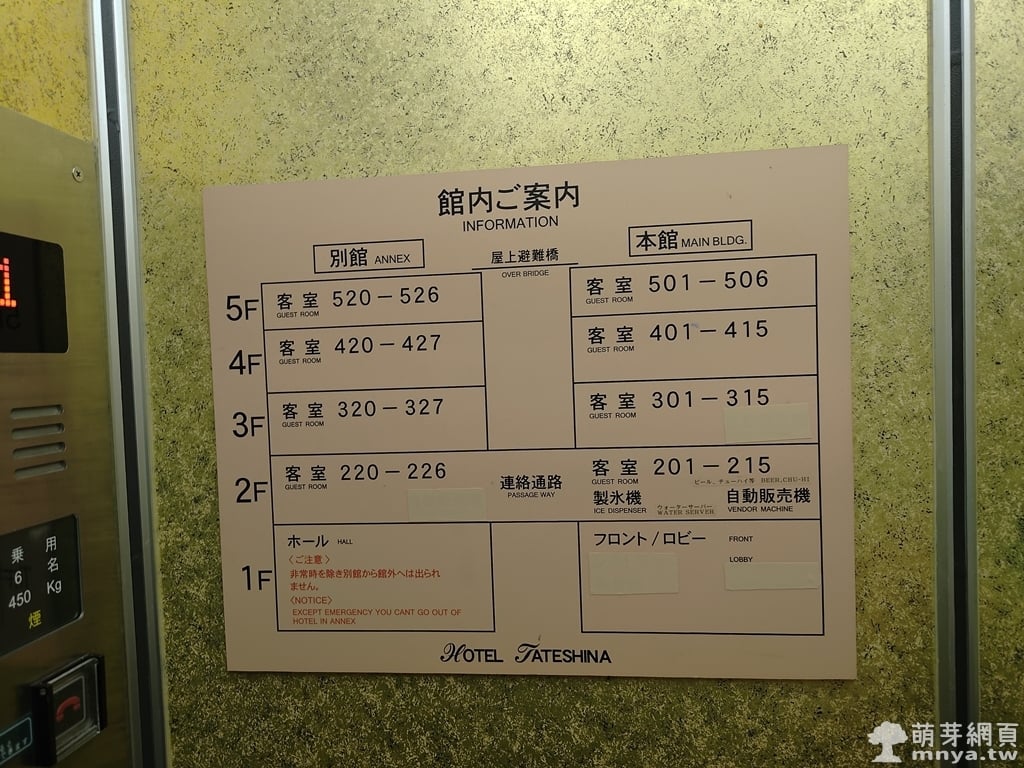 館内ご案内
INFORMATION
別館 ANNEX
屋上避難橋
OVER BRIDGE
本館 MAIN BLDG.
5F
客室 520-526
GUEST ROOM
客室 501-506
GUEST ROOM
4F
客室 420-427
GUEST ROOM
客室 401-415
GUEST ROOM
3F
客室 320-327
GUEST ROOM
客室 301-315
GUEST ROOM
2F
客室 220-226
GUEST ROOM
連絡通路
PASSAGE WAY
客室 201-215
GUEST ROOM
ビール、チューハイ等 BEER,CHU-HI
製氷機
ICE DISPENSER
ウォーターサーバー
WATER SERVER
自動販売機
VENDOR MACHINE
1F
ホール HALL
〈ご注意〉
非常時を除き別館から館外へは出られ
ません。
〈NOTICE〉
EXCEPT EMERGENCY YOU CANT GO OUT OF
HOTEL IN ANNEX
フロント/ロビー
FRONT
LOBBY
HOTEL TATESHINA
1
乗 用
6 名
450 Kg
煙
萌芽網頁
mnya.tw